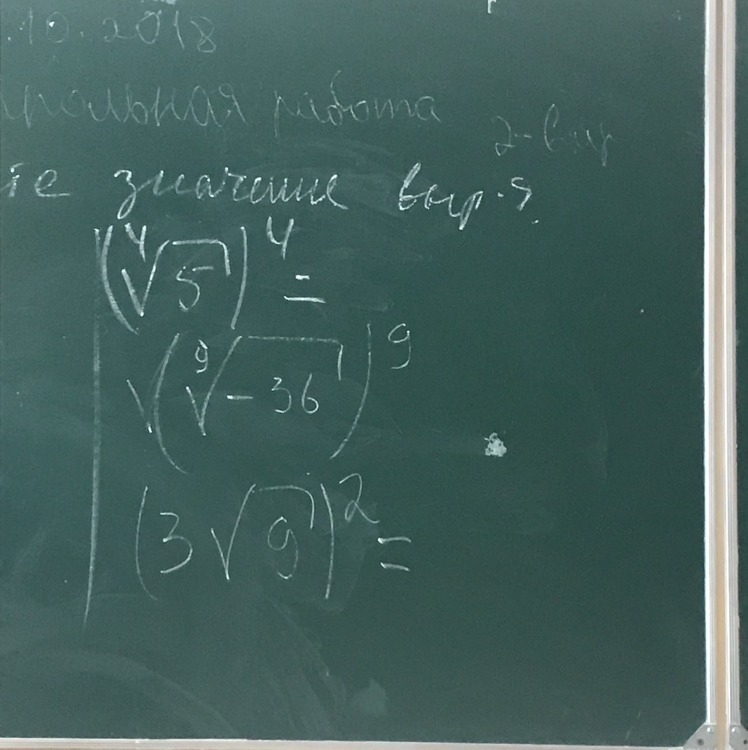 .10.2018
рольная работа
2-вар
те значение выр-я.
(⁴√5)⁴ =
√(⁹√-36)⁹
(3√9)² =